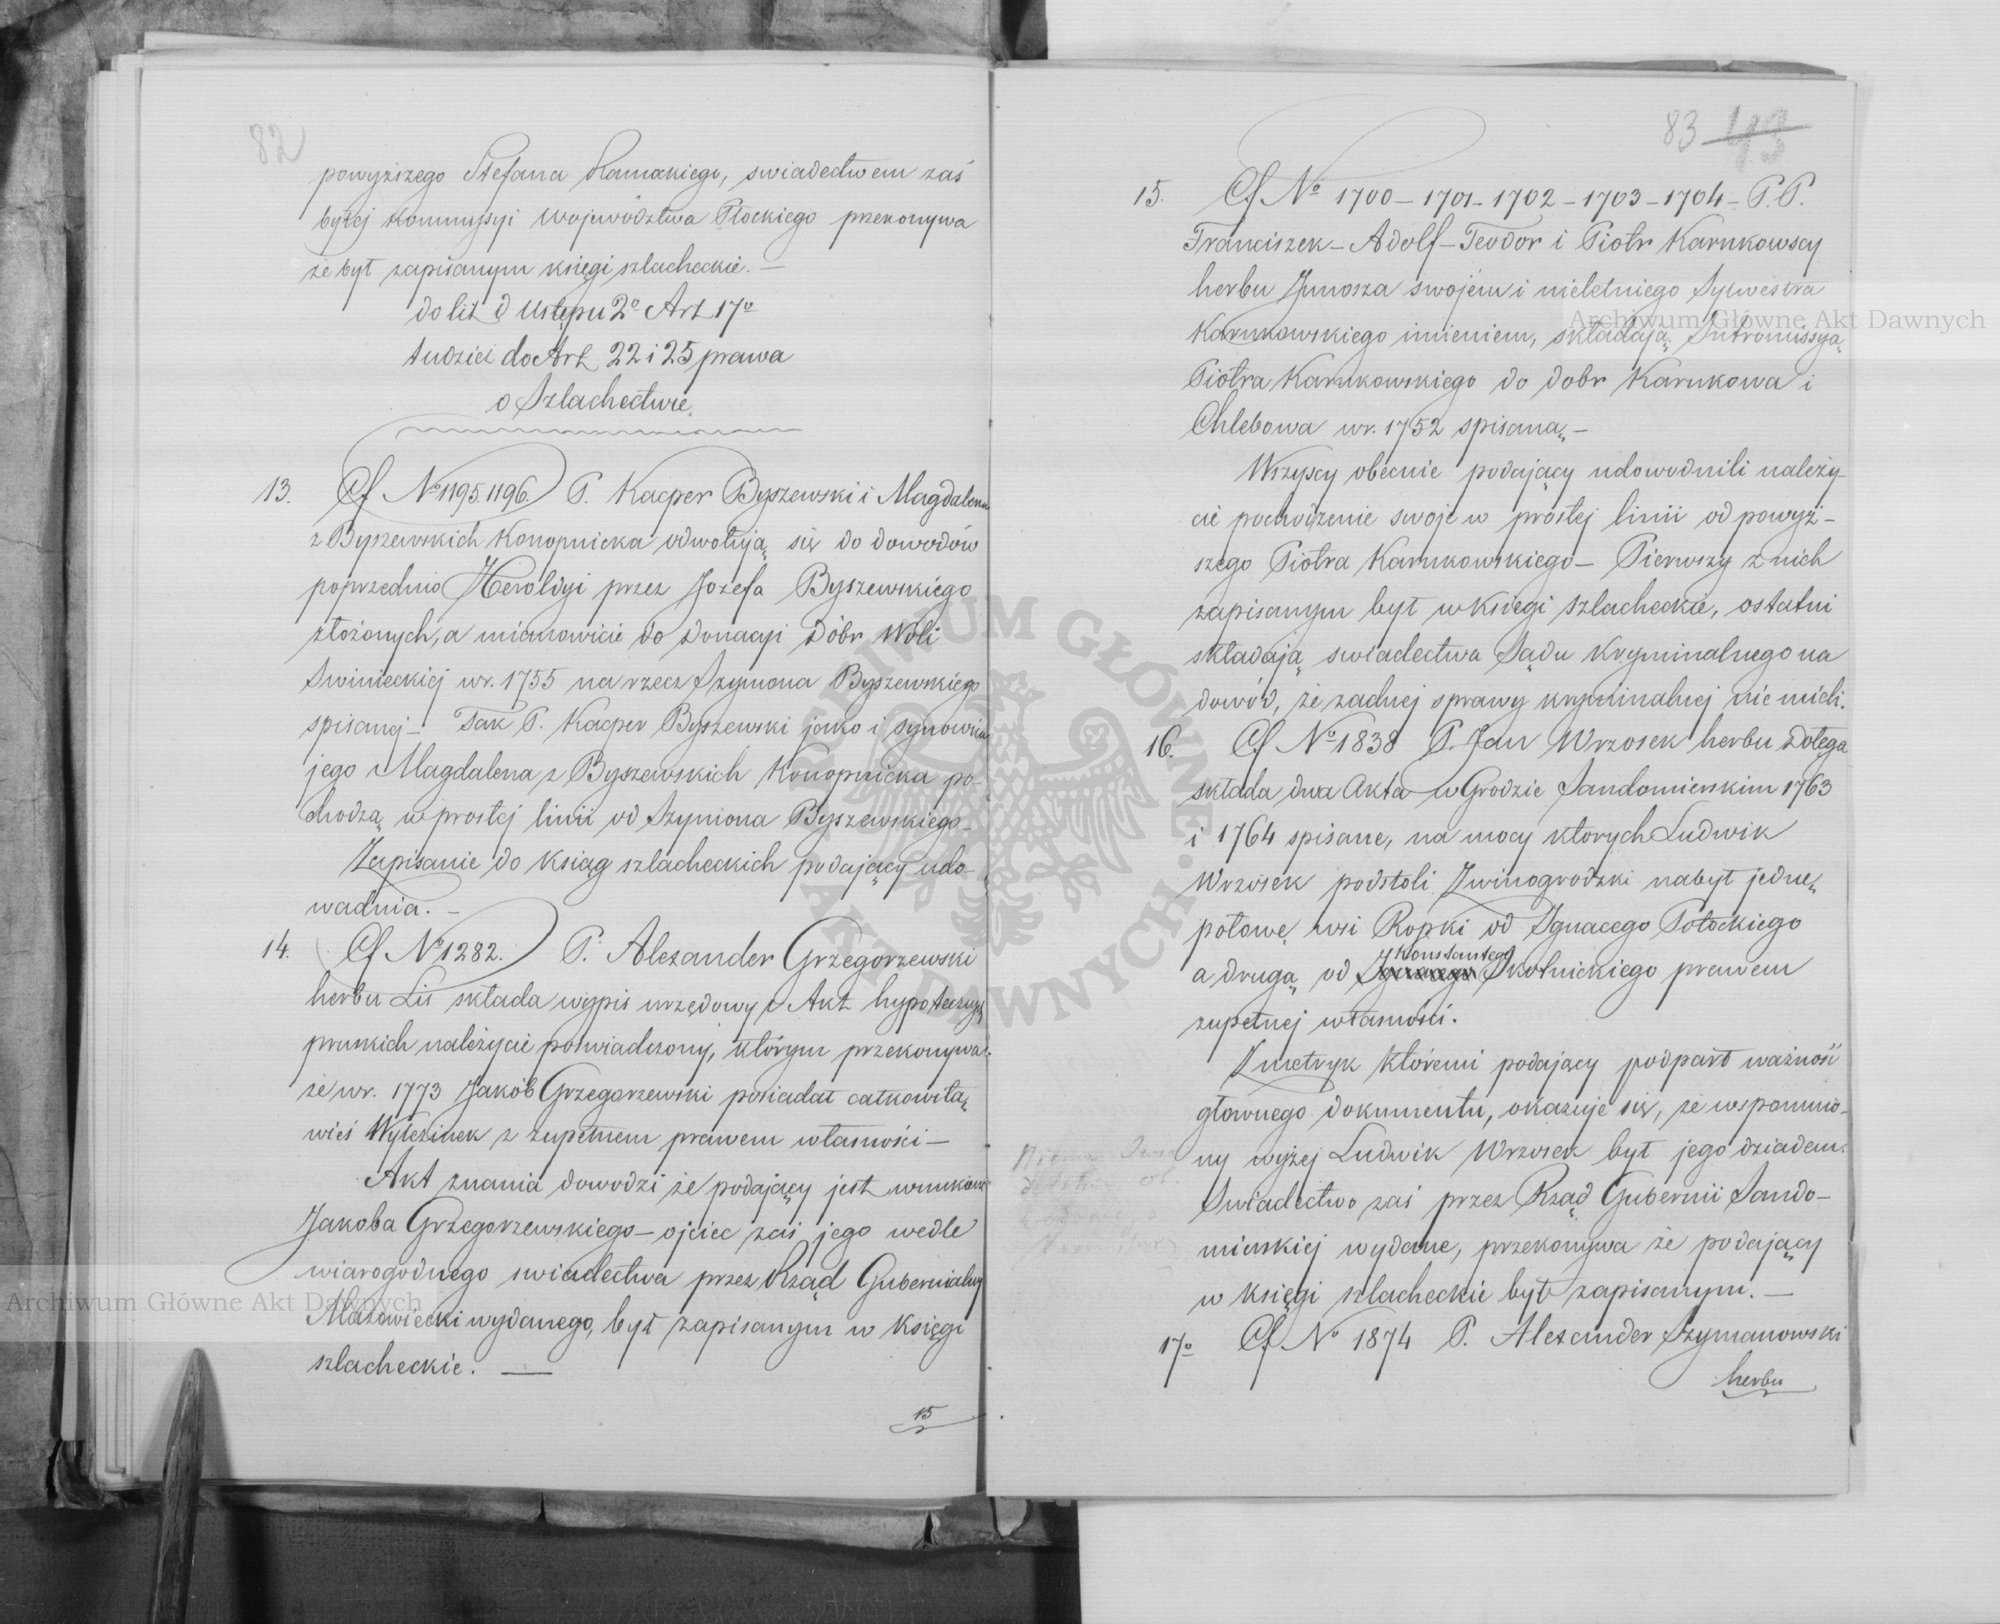 82
powyższego Stefana Słamskiego, swiadectwem zaś
byłej Kommyssyi Województwa Płockiego przekonywa
że był zapisanym księgi szlacheckie. —
do lit d Ustępu 2o Art 17o
tudzież do Art 22 i 25 prawa
o Szlachectwie.
13. Cf No 1195. 1196. P. Kacper Byszewski i Magdalena
z Byszewskich Konopnicka odwołują się do dowodów
poprzednio Heroldyi przez Jozefa Byszewskiego
złożonych, a mianowicie do Donacyi Dóbr Woli
Swinieckiej w r. 1755 na rzecz Szymona Byszewskiego
spisanej — Tak P. Kacper Byszewski jako i synowica
jego Magdalena z Byszewskich Konopnicka po-
chodzą w prostej linii od Szymona Byszewskiego —
Zapisanie do ksiąg szlacheckich podający udo-
wadnia. —
14. Cf No 1282. P. Alexander Grzegorzewski
herbu Lis składa wypis urzędowy z Akt hypoteczny
pruskich należycie poswiadczony, którym przekonywa
że w r. 1773 Jakób Grzegorzewski posiadał całkowitą
wieś Wylezinek z zupełnem prawem własności —
Akt znania dowodzi że podający jest wnukiem
Jakoba Grzegorzewskiego — ojciec zaś jego wedle
wiarogodnego swiadectwa przez Rząd Gubernialny
Mazowiecki wydanego, był zapisanym w księgi
szlacheckie. —
15
83 43
15. Cf No 1700 — 1701 — 1702 — 1703 — 1704 — P. P.
Franciszek — Adolf — Teodor i Piotr Karnkowscy
herbu Junosza swojém i nieletniego Sylwestra
Karnkowskiego imieniem, składają Intromissyą
Piotra Karnkowskiego do dobr Karnkowa i
Chlebowa w r. 1752 spisaną —
Wszyscy obecnie podający udowodnili należy-
cie pochodzenie swoje w prostej linii od powyż-
szego Piotra Karnkowskiego — Pierwszy z nich
zapisanym był w księgi szlacheckie, ostatni
składają swiadectwa Sądu Kryminalnego na
dowód, że żadnej sprawy kryminalnej nie mieli.
16. Cf No 1838 P. Jan Wrzosek herbu Dołega
składa dwa Akta w Grodzie Sandomierskim 1763
i 1764 spisane, na mocy których Ludwik
Wrzosek podstoli Zwinogrodzki nabył jednę
połowę wsi Ropki od Ignacego Potockiego
Konstantego
a drugą od Ignacego Skotnickiego prawem
zupełnej własności.
Z metryk któremi podający podparł ważność
głownego dokumentu, okazuje się, że wspomnio-
ny wyżej Ludwik Wrzosek był jego dziadem.
Swiadectwo zaś przez Rząd Gubernii Sando-
mierskiej wydane, przekonywa że podający
w księgi szlacheckie był zapisanym. —
17o Cf No 1874 P. Alexander Szymanowski
herbu
Archiwum Główne Akt Dawnych
Archiwum Główne Akt Dawnych
ARCHIWUM GŁÓWNE AKT DAWNYCH